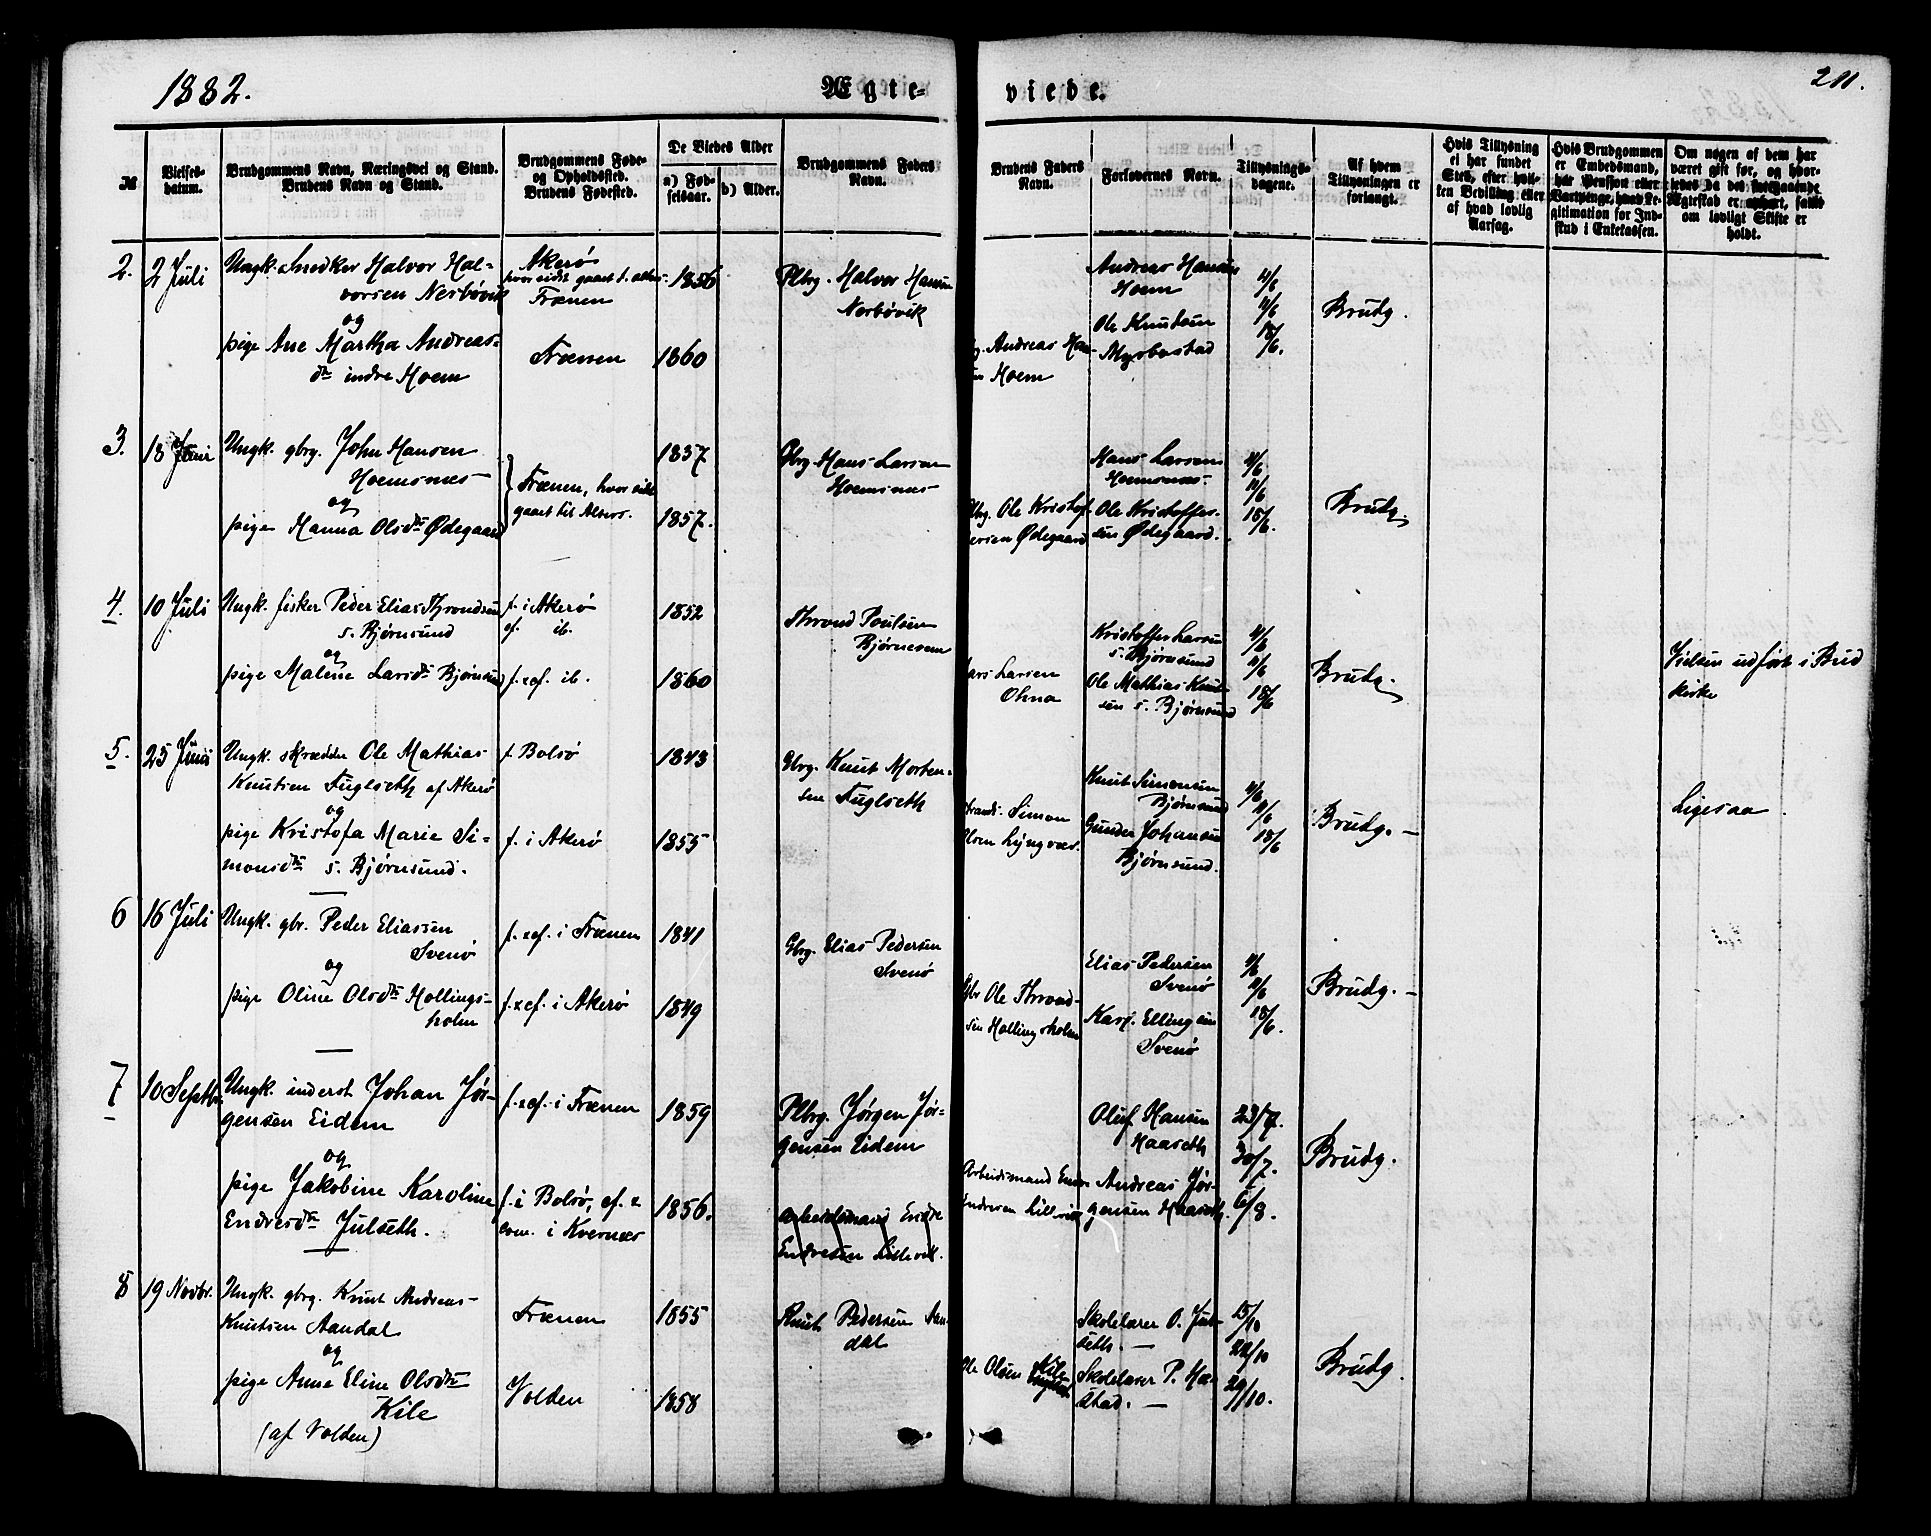 1882.
Ægte-
viede.
211.
№
Vielses-
datum.
Brudgommens Navn, Næringsvei og Stand.
Brudens Navn og Stand.
Brudgommens Føde-
og Opholdssted.
Brudens Fødested.
De Viedes Alder
a) Fød-
selsaar.
b) Alder.
Brudgommens Faders
Navn.
Brudens Faders
Navn.
Forlovernes Navn.
Tillysnings-
dagene.
Af hvem
Tillysningen er
forlangt.
Hvis Tillysning
ei har fundet
Sted, efter hvil-
ken Bevilling eller
af hvad lovlig
Aarsag.
Hvis Brudgommen
er Embedsmand,
har Pension eller
Vartpenge, hvad Le-
gitimation for Ind-
skud i Enkekassen.
Om nogen af dem har
været gift før, og hvor-
ledes da det foregaaende
Ægteskab er ophørt, samt
om lovligt Skifte er
holdt.
2. 2 Juli
Ungk. Snedker Halvor Hal-
vorsen Nerbøvik
og
pige Ane Martha Andreas-
dtr indre Hoem
Akerø
hvor sidst gaaet t. alters.
Frænen
Frænen
1856
1860
Plbrg. Halvor Hansen
Nerbøvik
Andreas Han-
sen Hoem
Andreas Hansen
Hoem
Ole Knutsen
Myrbostad
4/6
11/6
18/6.
Brudg.
3. 18 Juni
Ungk. gbrg. John Hansen
Hoemsnes
og
pige Hanna Olsdtr Ødegaard
Frænen, hvor sidst
gaaet til Alters.
1837
1857.
Gbrg. Hans Larsen
Hoemsnes
Gbrg. Ole Kristof-
fersen Ødegaard
Hans Larsen
Hoemsnes.
Ole Kristoffer-
sen Ødegaard.
4/6
11/6
18/6.
Brudg.
4. 10 Juli
Ungk. fisker Peder Elias Throndsen
s. Bjørnsund
og
pige Malene Larsdtr Bjørnsund
f. i Akerø
cf. ib.
f. & cf. ib.
1852
1860
Thrond Poulsen
Bjørnerem
Lars Larsen
Ohna
Kristoffer Larsen
s. Bjørnsund
Ole Mathias Knut-
sen s. Bjørnsund
4/6
11/6
18/6
Brudg.
Vielsen udført i Bud
kirke
5. 25 Juni
Ungk. skrædder Ole Mathias
Knutsen Fuglseth af Akerø
og
pige Kristofa Marie Si-
monsdtr s. Bjørnsund.
f. Bolsø
f. i Akerø
1843
1855
Gbrg. Knut Morten-
sen Fuglseth
Strands. Simon
Olsen Lyngvær.
Knut Simonsen
Bjørnsund
Gunder Johansen
Bjørnsund.
4/6
11/6
18/6
Brudg. —
Ligesaa
6 16 Juli
Ungk. gbr. Peder Eliassen
Svenø
og
pige Oline Olsdtr Hollings-
holm
f. & cf. i Frænen
f. & cf. i Akerø
1841
1849
Gbrg. Elias Pedersen
Svenø
Gbr Ole Thrond-
sen Hollingsholm
Elias Pedersen
Svenø
Kasp. Ellingsen
Svenø
4/6
11/6
18/6.
Brudg. —
7 10 Septbr.
Ungk. inderst Johan Jør-
gensen Eidem
og
pige Jakobine Karoline
Endresdtr Julseth.
f. & cf. i Frænen
f. i Bolsø, cf. &
conf. i Kvernes
1859
1856.
Plbrg. Jørgen Jør-
gensen Eidem
Arbeidsmand Endre
Endresen Lillevik.
Arbeidsmand Endre
Endresen Lillevik
Oluf Hansen
Haaseth
Andreas Jør-
gensen Haaseth.
23/7.
30/7.
6/8.
Brudg.
8 19 Novbr.
Ungk. gbrg. Knut Andreas
Knutsen Aandal
og
pige Anne Eline Olsdtr
Kile
(af Volden)
Frænen
Volden
1855
1858
Knut Pedersen Aan-
dal
Ole Olsen Kile
Skolelærer O. Jul-
seth. —
Skolelærer P. Ha-
stad. —
15/10
22/10
29/10.
Brudg.